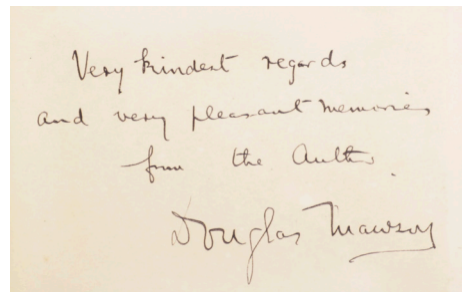 Very kindest regards
and very pleasant memories
from the Author.
Douglas Mawson